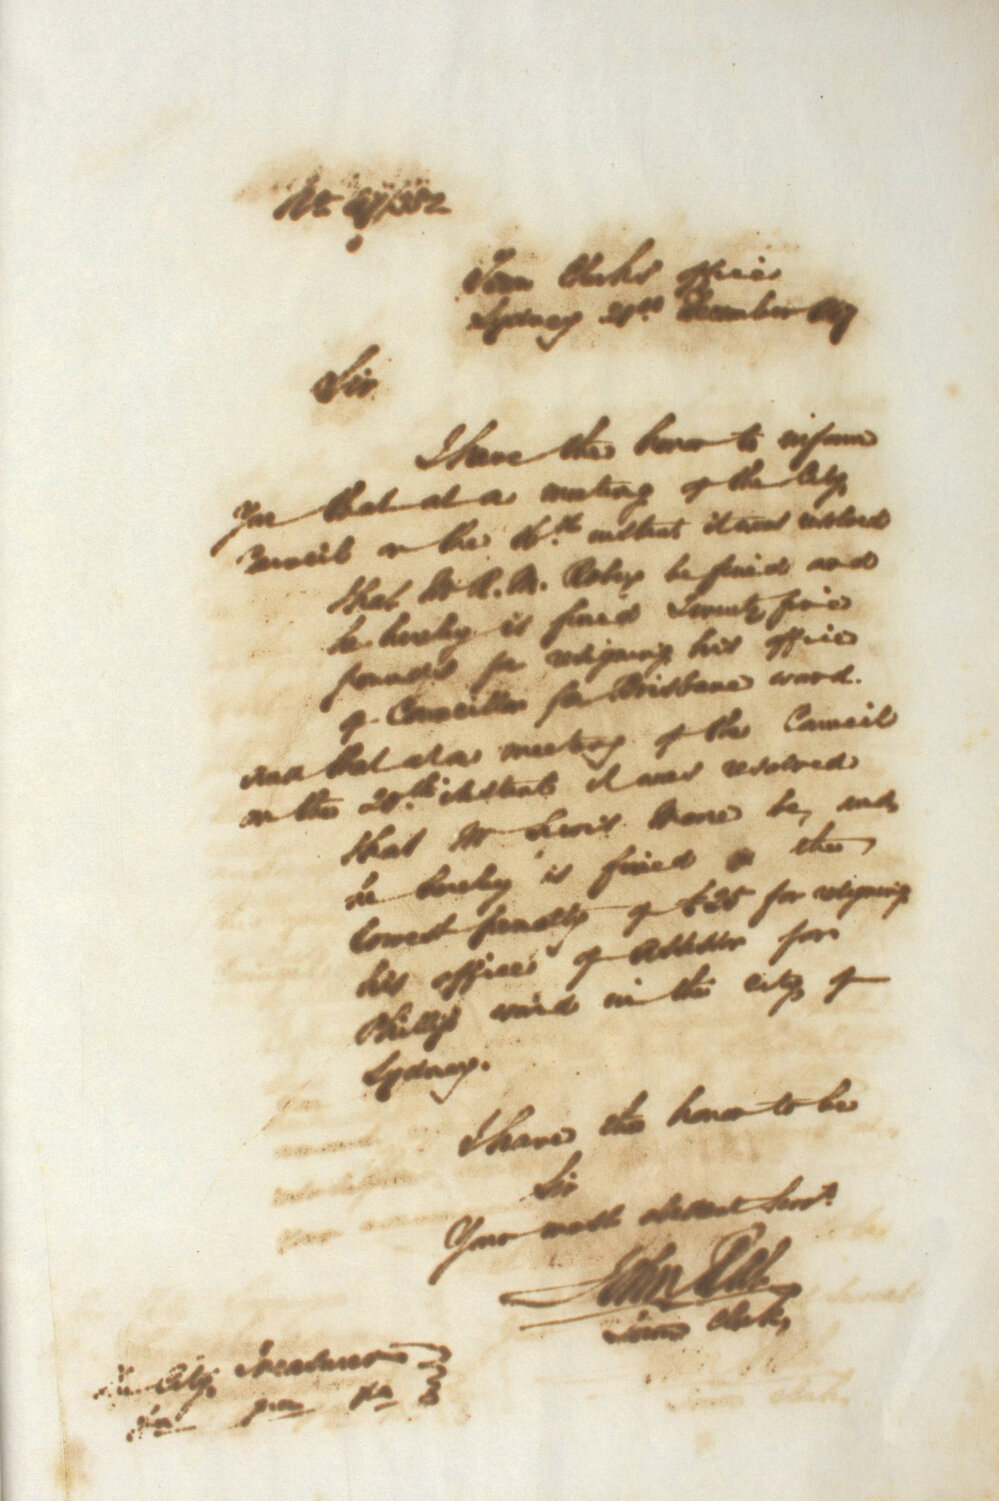 No 47/352
Town Clerk's office
Sydney 21st December 1847
Sir
I have the honor to inform
You that at a meeting of the City
Council on the 16th instant it was resolved
that Mr R. M. Robey be fined and
he hereby is fined Seventy five
pounds for resigning his office
of Councillor for Brisbane ward.
and that at a meeting of the Council
on the 20th instant it was resolved
that Mr Lewis Moore be, and
he hereby is fined in the
lowest penalty of £25 for resigning
his office of Assessor for
Phillip ward in the city of
Sydney.
I have the honor to be
Sir
Your most obedient Servt.
John Rae
Town Clerk
The City Treasurer